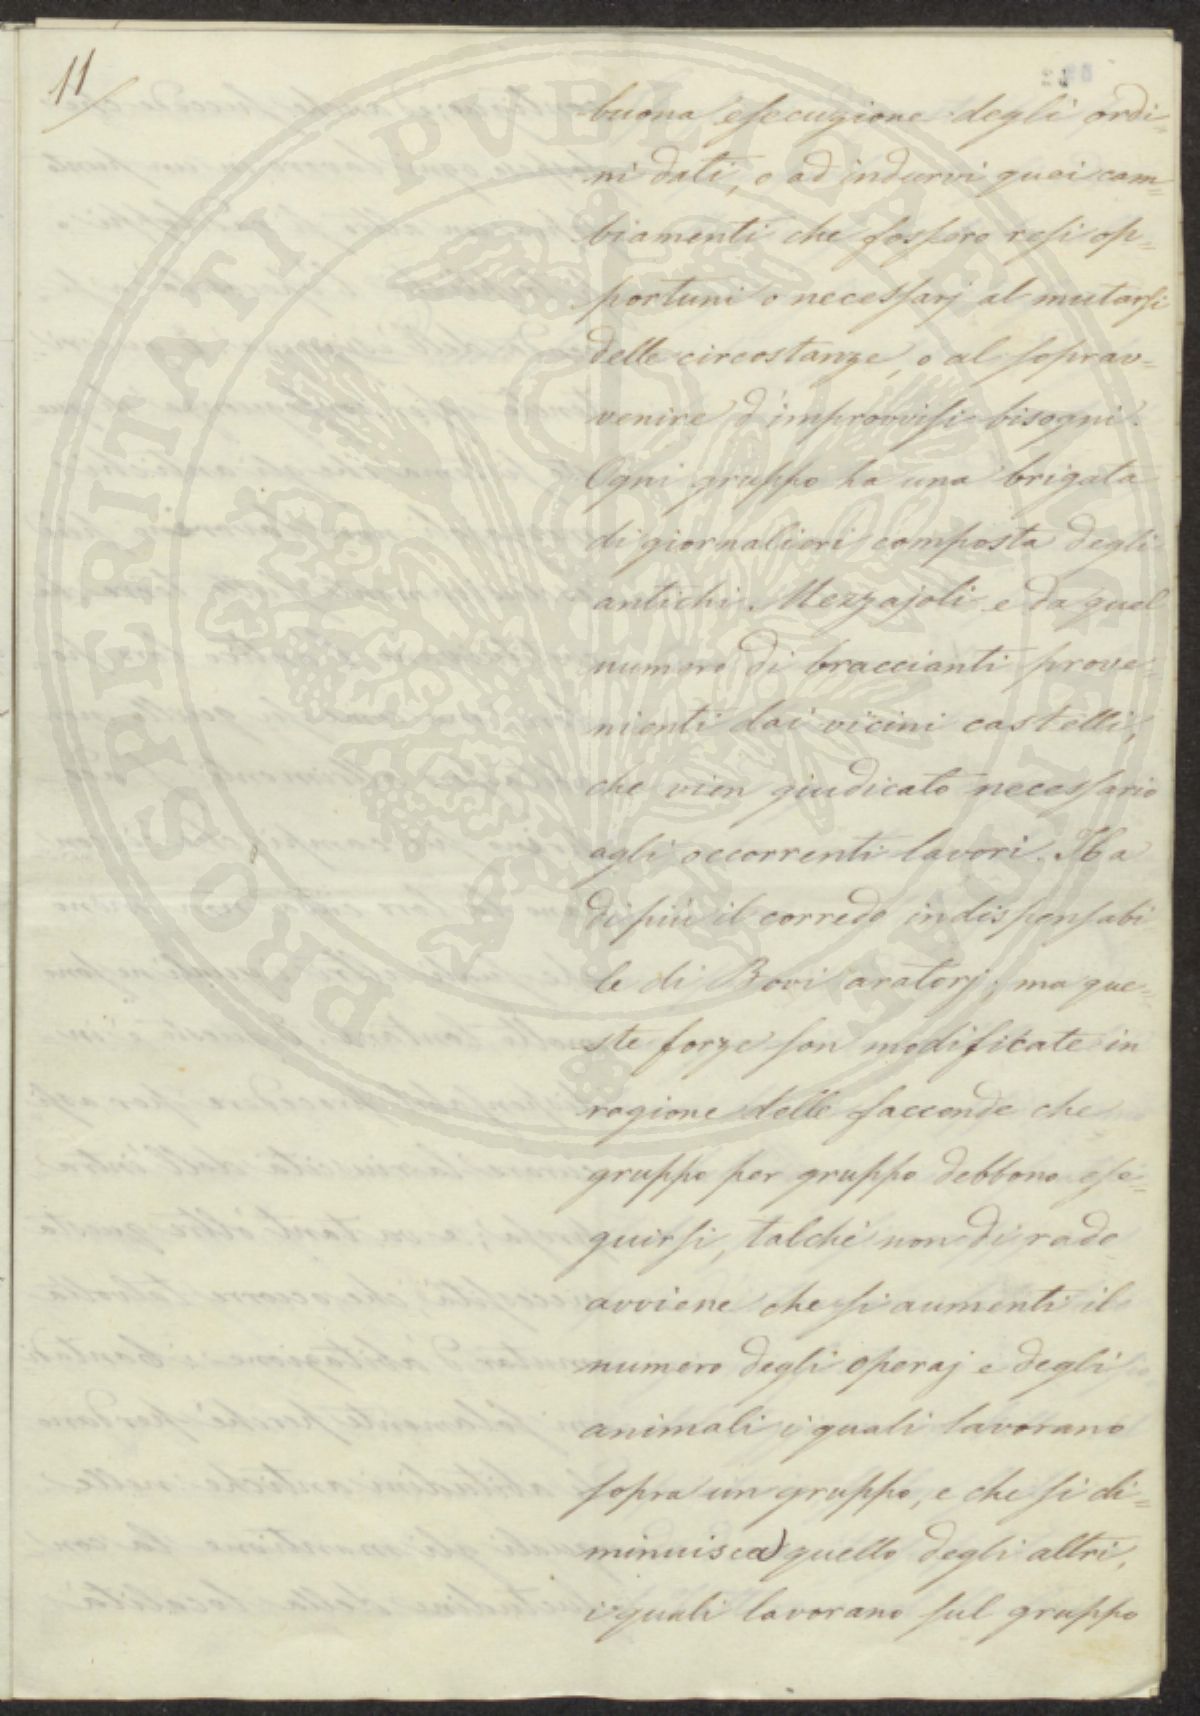 11
buona esecuzione degli ordi=
ni dati, o ad indurvi quei cam=
biamenti che fossero resi op=
portuni o necessarj al mutarsi
delle circostanze, o al soprav=
venire d'improvvisi bisogni.
Ogni gruppo ha una brigata
di giornalieri composta degli
antichi Mezzajoli e da quel
numero di braccianti prove=
nienti dai vicini castelli,
che vien giudicato necessario
agli occorrenti lavori. Ha
di più il corredo indispensabi=
le di Bovi aratorj; ma que=
ste forze son modificate in
ragione delle faccende che
gruppo per gruppo debbono ese=
guirsi, talchè non di rado
avviene che si aumenti il
numero degli operaj e degli
animali i quali lavorano
sopra un gruppo, e che si di=
minuisca quello degli altri,
i quali lavorano sul gruppo
PROSPERITATI PUBLICAE